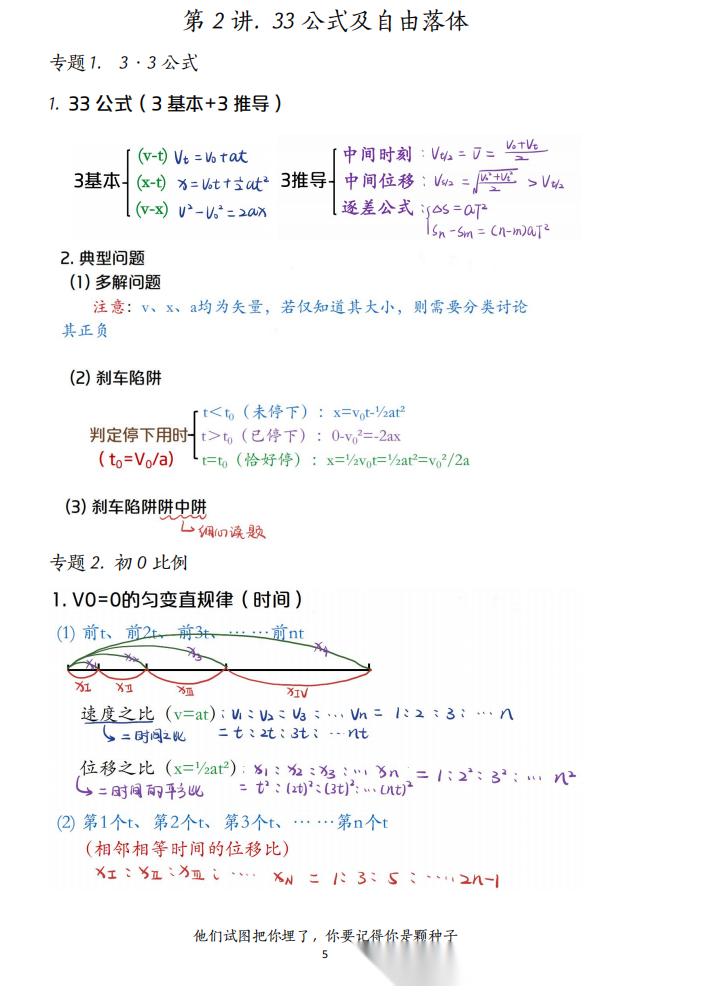 第 2 讲. 33 公式及自由落体
专题1. 3·3 公式
1. 33 公式（3 基本+3 推导）
3基本
(v-t) Vt = V0 + at
(x-t) x = V0t + ½at²
(v-x) V² - V0² = 2ax
3推导
中间时刻：Vt/2 = v̄ = (V0+Vt)/2
中间位移：Vs/2 = √((V0²+Vt²)/2) > Vt/2
逐差公式：ΔS = aT²
Sn - Sm = (n-m)aT²
2. 典型问题
(1) 多解问题
注意：v、x、a均为矢量，若仅知道其大小，则需要分类讨论
其正负
(2) 刹车陷阱
判定停下用时
（t₀=V₀/a）
t＜t₀（未停下）：x=v₀t-½at²
t＞t₀（已停下）：0-v₀²=-2ax
t=t₀（恰好停）：x=½v₀t=½at²=v₀²/2a
(3) 刹车陷阱阱中阱
细心读题
专题 2. 初 0 比例
1. V0=0的匀变直规律（时间）
(1) 前t、前2t、前3t、……前nt
x1 x2 x3 x4
xⅠ xⅡ xⅢ xⅣ
速度之比（v=at）：V1：V2：V3：… Vn = 1：2：3：… n
=时间之比 = t：2t：3t：… nt
位移之比（x=½at²）：x1：x2：x3：… xn = 1：2²：3²：… n²
=时间的平方比 = t²：(2t)²：(3t)²：…(nt)²
(2) 第1个t、第2个t、第3个t、……第n个t
（相邻相等时间的位移比）
xⅠ：xⅡ：xⅢ：…. xN = 1：3：5：….. 2n-1
他们试图把你埋了，你要记得你是颗种子
5